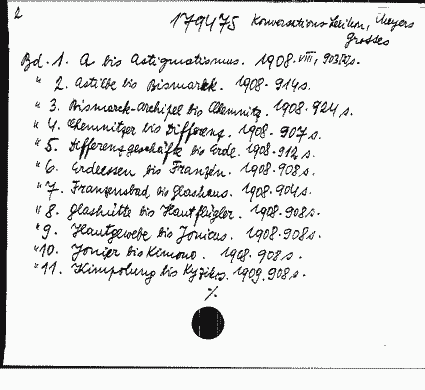 2
179475 Konversations-Lexikon, Meyers
Grosses
Bd. 1. A bis Astigmatismus. 1908. VIII, 903 s.
" 2. Astilbe bis Bismarck. 1908. 914 s.
" 3. Bismarck-Archipel bis Chemnitz. 1908. 924 s.
" 4. Chemnitzer bis Differenz. 1908. 907 s.
" 5. Differenzgeschäfte bis Erde. 1908. 912 s.
" 6. Erdeessen bis Franzén. 1908. 908 s.
" 7. Franzensbad bis Glashaus. 1908. 904 s.
" 8. Glashütte bis Hautflügler. 1908. 908 s.
" 9. Hautgewebe bis Jonicus. 1908. 908 s.
" 10. Jonier bis Kimono. 1908. 908 s.
" 11. Kimpolung bis Kyzikos. 1909. 908 s.
./.